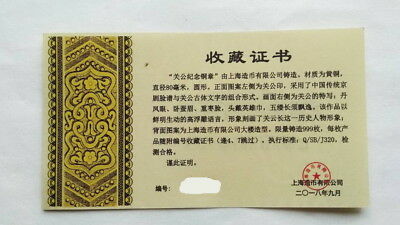 收藏证书
“关公纪念铜章”由上海造币有限公司铸造。材质为黄铜，
直径80毫米，圆形。正面图案左侧为关公印，采用了中国传统京
剧脸谱与关公古体文字的组合形式。画面右侧为关公的特写：丹
凤眼、卧蚕眉、重枣脸、头戴英雄巾，五缕长须飘逸。该作品以
鲜明生动的高浮雕语言，形象刻画了关云长这一历史人物形象；
背面图案为上海造币有限公司大楼造型。限量铸造999枚，每枚产
品随附编号收藏证书（逢4、7跳过），执行标准：Q/SB/J320，检
测合格。
谨此证明。
编号：
上海造币有限公司
二〇一八年九月